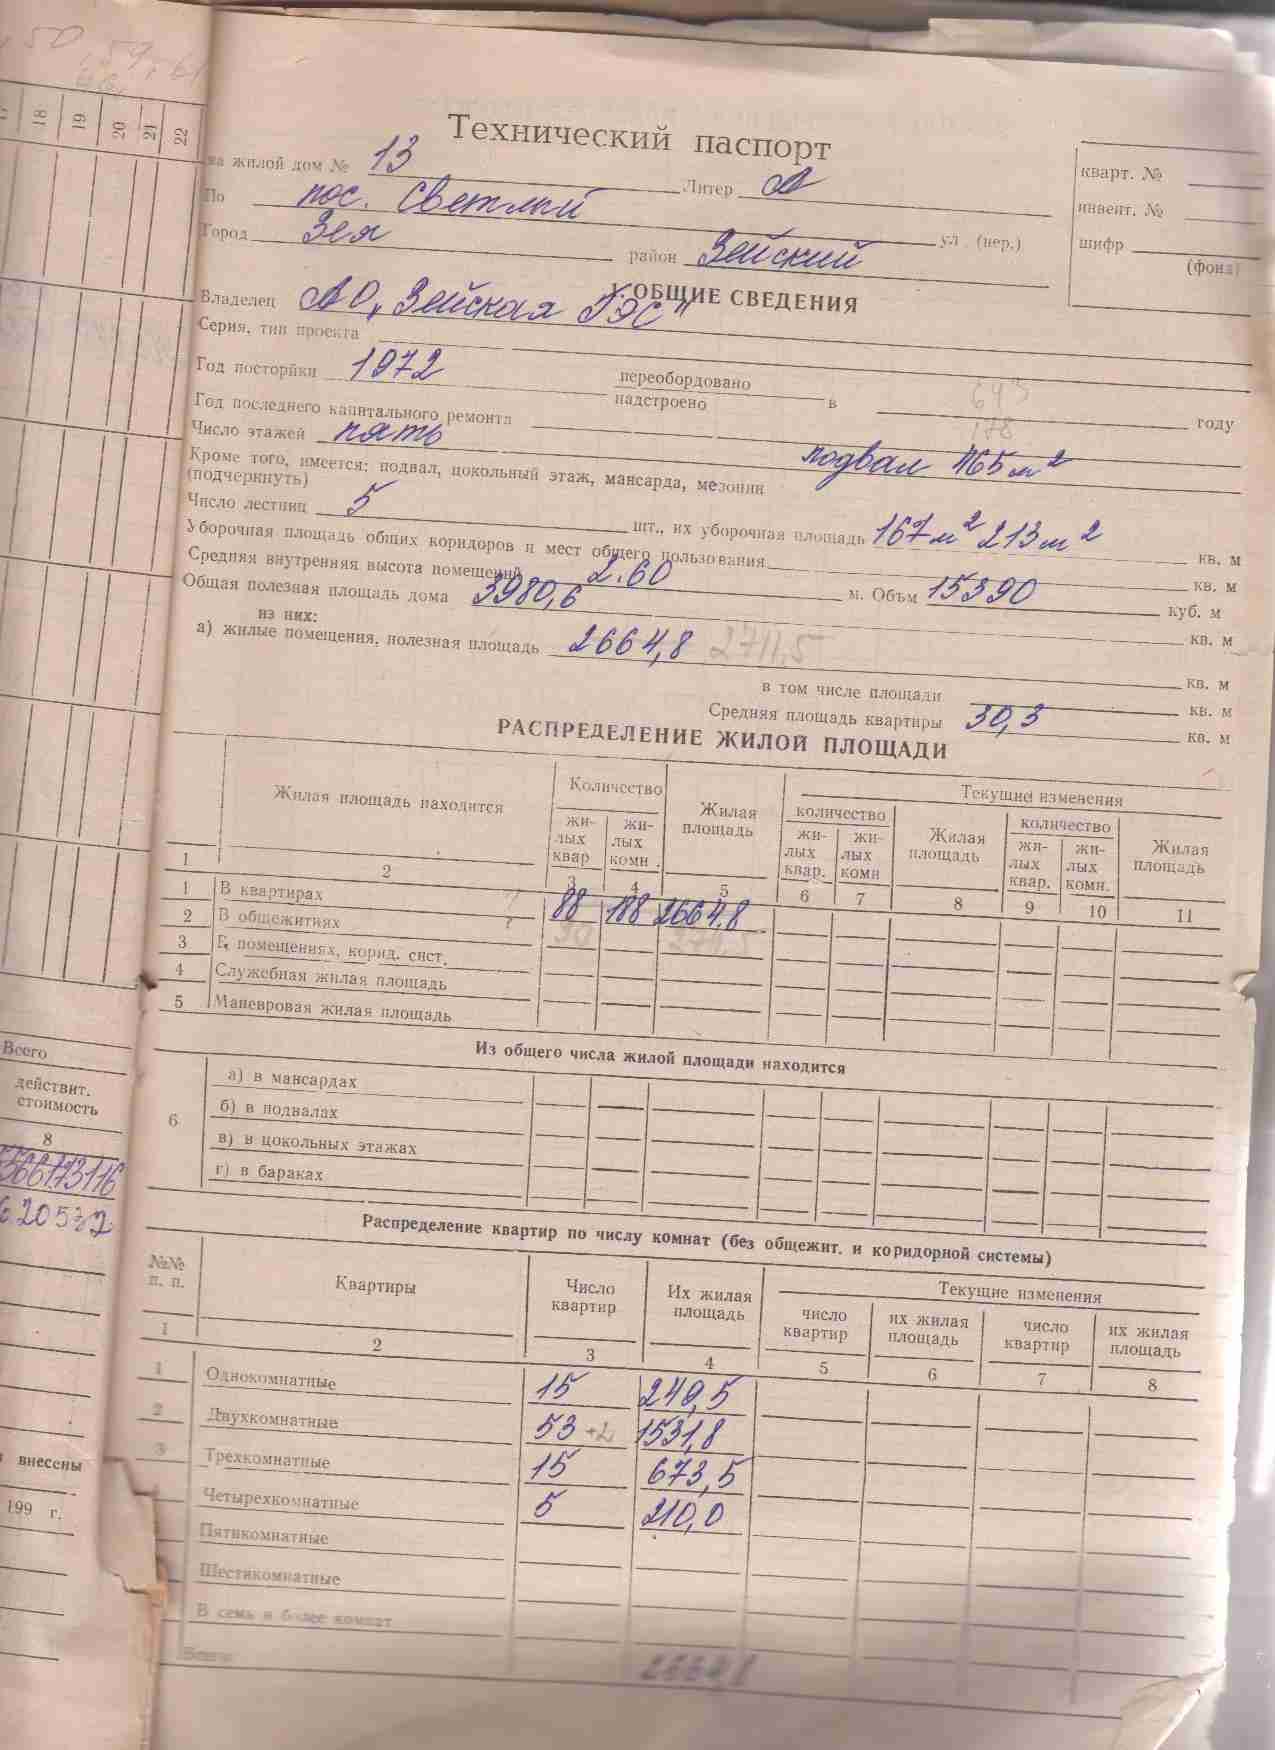 17 18 19 20 21 22
Всего
действит.
стоимость
8
внесены
199 г.
Технический паспорт
на жилой дом № 13 Литер А
По пос. Светлый ул. (пер.)
Город Зея район Зейский
кварт. №
инвент. №
шифр
(фонд)
I. ОБЩИЕ СВЕДЕНИЯ
Владелец АО „Зейская ГЭС"
Серия, тип проекта
Год посторйки 1972 переобордовано
надстроено в году
Год последнего капитального ремонта
178
Число этажей пять
подвал 765 м²
Кроме того, имеется: подвал, цокольный этаж, мансарда, мезонин
(подчеркнуть)
Число лестниц 5 шт., их уборочная площадь 167 м² 213 м² кв. м
Уборочная площадь общих коридоров и мест общего пользования кв. м
Средняя внутренняя высота помещений 2.60 м. Объм 15390 куб. м
Общая полезная площадь дома 3980,6 кв. м
из них:
а) жилые помещения, полезная площадь 2664,8 2711,5 кв. м
в том числе площади кв. м
Средняя площадь квартиры 30,3 кв. м
РАСПРЕДЕЛЕНИЕ ЖИЛОЙ ПЛОЩАДИ
Жилая площадь находится
Количество
жи-
лых
квар
жи-
лых
комн.
Жилая
площадь
Текущие изменения
количество
жи-
лых
квар.
жи-
лых
комн
Жилая
площадь
количество
жи-
лых
квар.
жи-
лых
комн.
Жилая
площадь
1 2 3 4 5 6 7 8 9 10 11
1 В квартирах 88 188 2664,8
2 В общежитиях 90
3 В помещениях, корид. сист.
4 Служебная жилая площадь
5 Маневровая жилая площадь
Из общего числа жилой площади находится
6
а) в мансардах
б) в подвалах
в) в цокольных этажах
г) в бараках
Распределение квартир по числу комнат (без общежит. и коридорной системы)
№№
п. п.
Квартиры
Число
квартир
Их жилая
площадь
Текущие изменения
число
квартир
их жилая
площадь
число
квартир
их жилая
площадь
1 2 3 4 5 6 7 8
1 Однокомнатные 15 249,5
2 Двухкомнатные 53 +2 1531,8
3 Трехкомнатные 15 673,5
Четырехкомнатные 5 210,0
Пятикомнатные
Шестикомнатные
В семь и более комнат
Всего 2664,8